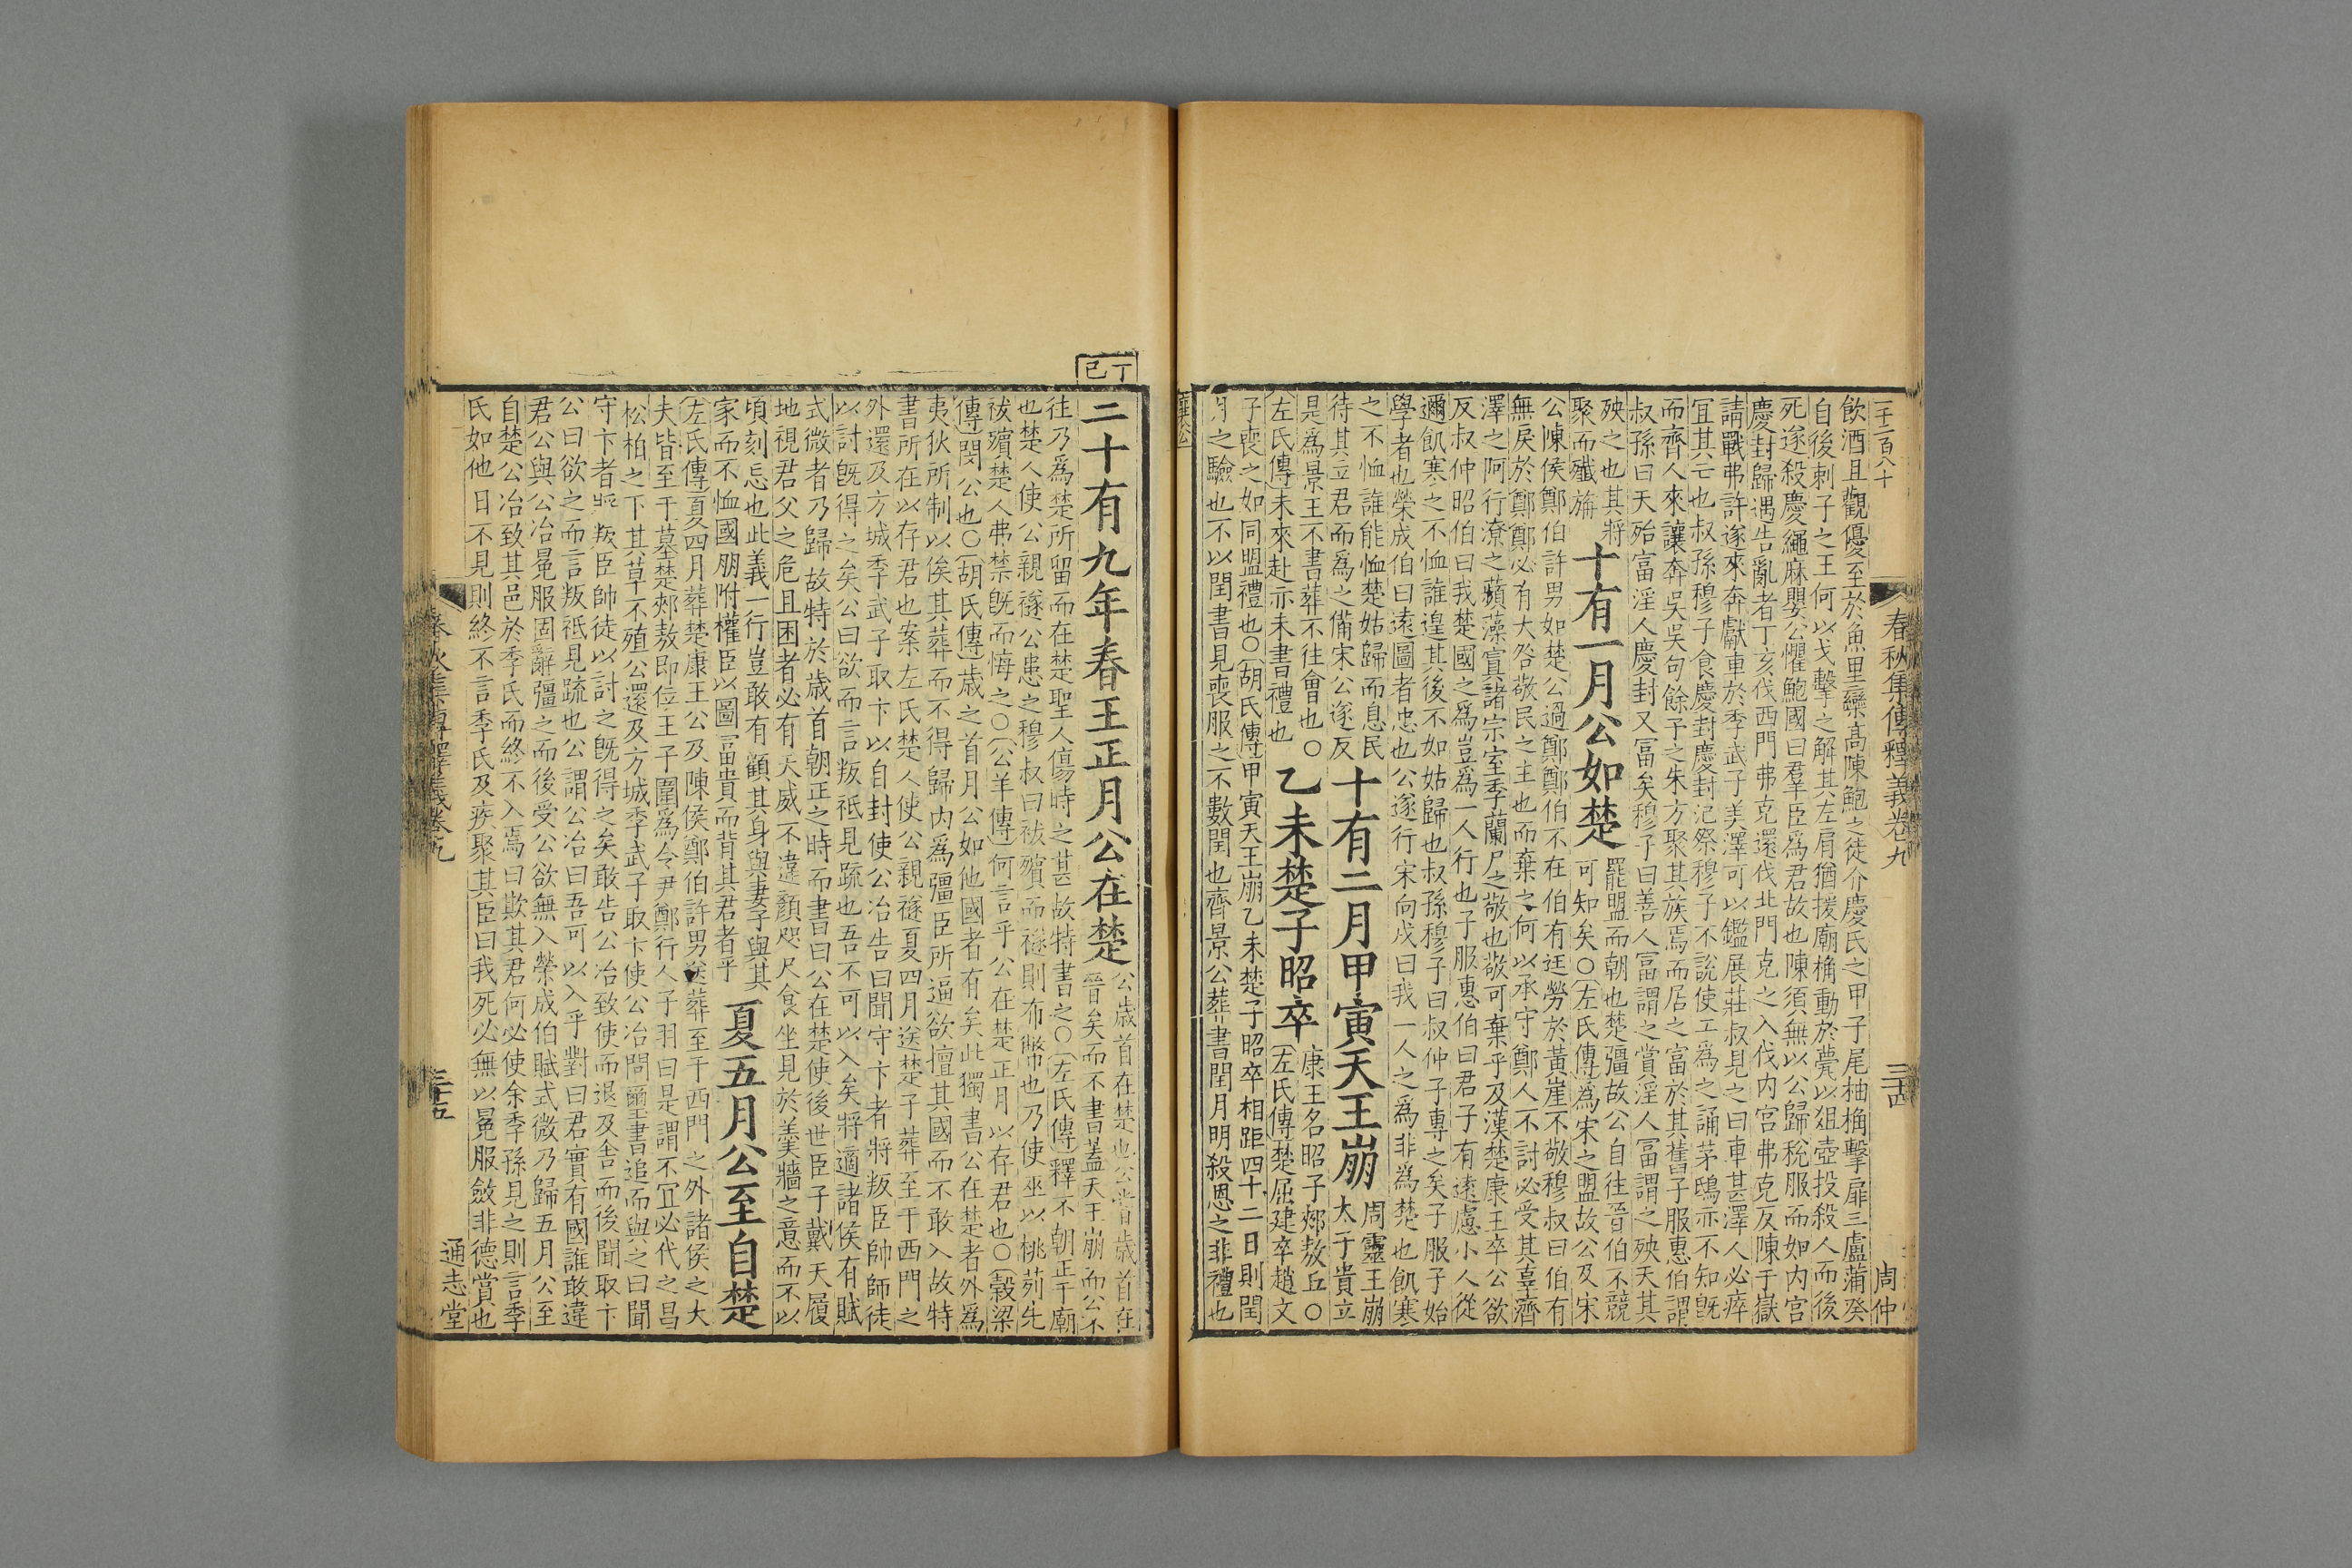 春秋集傳釋義卷九 三十四 周仲
飲酒且觀優至於魚里欒高陳鮑之徒介慶氏之甲子尾抽桷擊扉三盧蒲癸
自後刺子之王何以戈擊之解其左肩猶援廟桷動於甍以俎壺投殺人而後
死遂殺慶繩麻嬰公懼鮑國曰羣臣爲君故也陳須無以公歸稅服而如内宮
慶封歸遇告亂者丁亥伐西門弗克還伐北門克之入伐内宮弗克反陳于嶽
請戰弗許遂來奔獻車於季武子美澤可以鑑展莊叔見之曰車甚澤人必瘁
宜其亡也叔孫穆子食慶封慶封氾祭穆子不說使工爲之誦茅鴟亦不知旣
而齊人來讓奔吳吳句餘予之朱方聚其族焉而居之富於其舊子服惠伯謂
叔孫曰天殆富淫人慶封又富矣穆子曰善人富謂之賞淫人富謂之殃天其
殃之也其將
聚而殲旃
十有一月公如楚
罷盟而朝也楚彊故公自往晉伯不競
可知矣○左氏傳爲宋之盟故公及宋
公陳侯鄭伯許男如楚公過鄭鄭伯不在伯有迋勞於黃崖不敬穆叔曰伯有
無戾於鄭鄭必有大咎敬民之主也而棄之何以承守鄭人不討必受其辜濟
澤之阿行潦之蘋藻寘諸宗室季蘭尸之敬也敬可棄乎及漢楚康王卒公欲
反叔仲昭伯曰我楚國之爲豈爲一人行也子服惠伯曰君子有遠慮小人從
邇飢寒之不恤誰遑其後不如姑歸也叔孫穆子曰叔仲子專之矣子服子始
學者也榮成伯曰遠圖者忠也公遂行宋向戌曰我一人之爲非爲楚也飢寒
之不恤誰能恤楚姑歸而息民
待其立君而爲之備宋公遂反
十有二月甲寅天王崩
周靈王崩
太子貴立
是爲景王不書葬不往會也○
左氏傳未來赴亦未書禮也
乙未楚子昭卒
康王名昭子郟敖立○
左氏傳楚屈建卒趙文
子喪之如同盟禮也○胡氏傳甲寅天王崩乙未楚子昭卒相距四十二日則閏
月之驗也不以閏書見喪服之不數閏也齊景公葬書閏月明殺恩之非禮也
丁巳
二十有九年春王正月公在楚
公歲首在楚也公嘗歲首在
晉矣而不書蓋天王崩而公不
往乃爲楚所留而在楚聖人傷時之甚故特書之○左氏傳釋不朝正于廟
也楚人使公親襚公患之穆叔曰祓殯而襚則布幣也乃使巫以桃茢先
祓殯楚人弗禁旣而悔之○公羊傳何言乎公在楚正月以存君也○穀梁
傳閔公也○胡氏傳歲之首月公如他國者有矣此獨書公在楚者外爲
夷狄所制以俟其葬而不得歸内爲彊臣所逼欲擅其國而不敢入故特
書所在以存君也案左氏楚人使公親襚夏四月送楚子葬至于西門之
外還及方城季武子取卞以自封使公冶告曰聞守卞者將叛臣帥師徒
以討旣得之矣公曰欲而言叛祗見疏也吾不可以入矣將適諸侯有賦
式微者乃歸故特於歲首朝正之時而書曰公在楚使後世臣子戴天履
地視君父之危且困者必有天威不違顏咫尺食坐見於羹牆之意而不以
頃刻忘也此義一行豈敢有顧其身與妻子與其
家而不恤國朋附權臣以圖富貴而背其君者乎
夏五月公至自楚
左氏傳夏四月葬楚康王公及陳侯鄭伯許男送葬至于西門之外諸侯之大
夫皆至于墓楚郟敖即位王子圍爲令尹鄭行人子羽曰是謂不宜必代之昌
松柏之下其草不殖公還及方城季武子取卞使公冶問璽書追而與之曰聞
守卞者將叛臣帥徒以討之旣得之矣敢告公冶致使而退及舍而後聞取卞
公曰欲之而言叛祗見疏也公謂公冶曰吾可以入乎對曰君實有國誰敢違
君公與公冶冕服固辭彊之而後受公欲無入榮成伯賦式微乃歸五月公至
自楚公冶致其邑於季氏而終不入焉曰欺其君何必使余季孫見之則言季
氏如他日不見則終不言季氏及疾聚其臣曰我死必無以冕服斂非德賞也
春秋集傳釋義卷九 三十五 通志堂